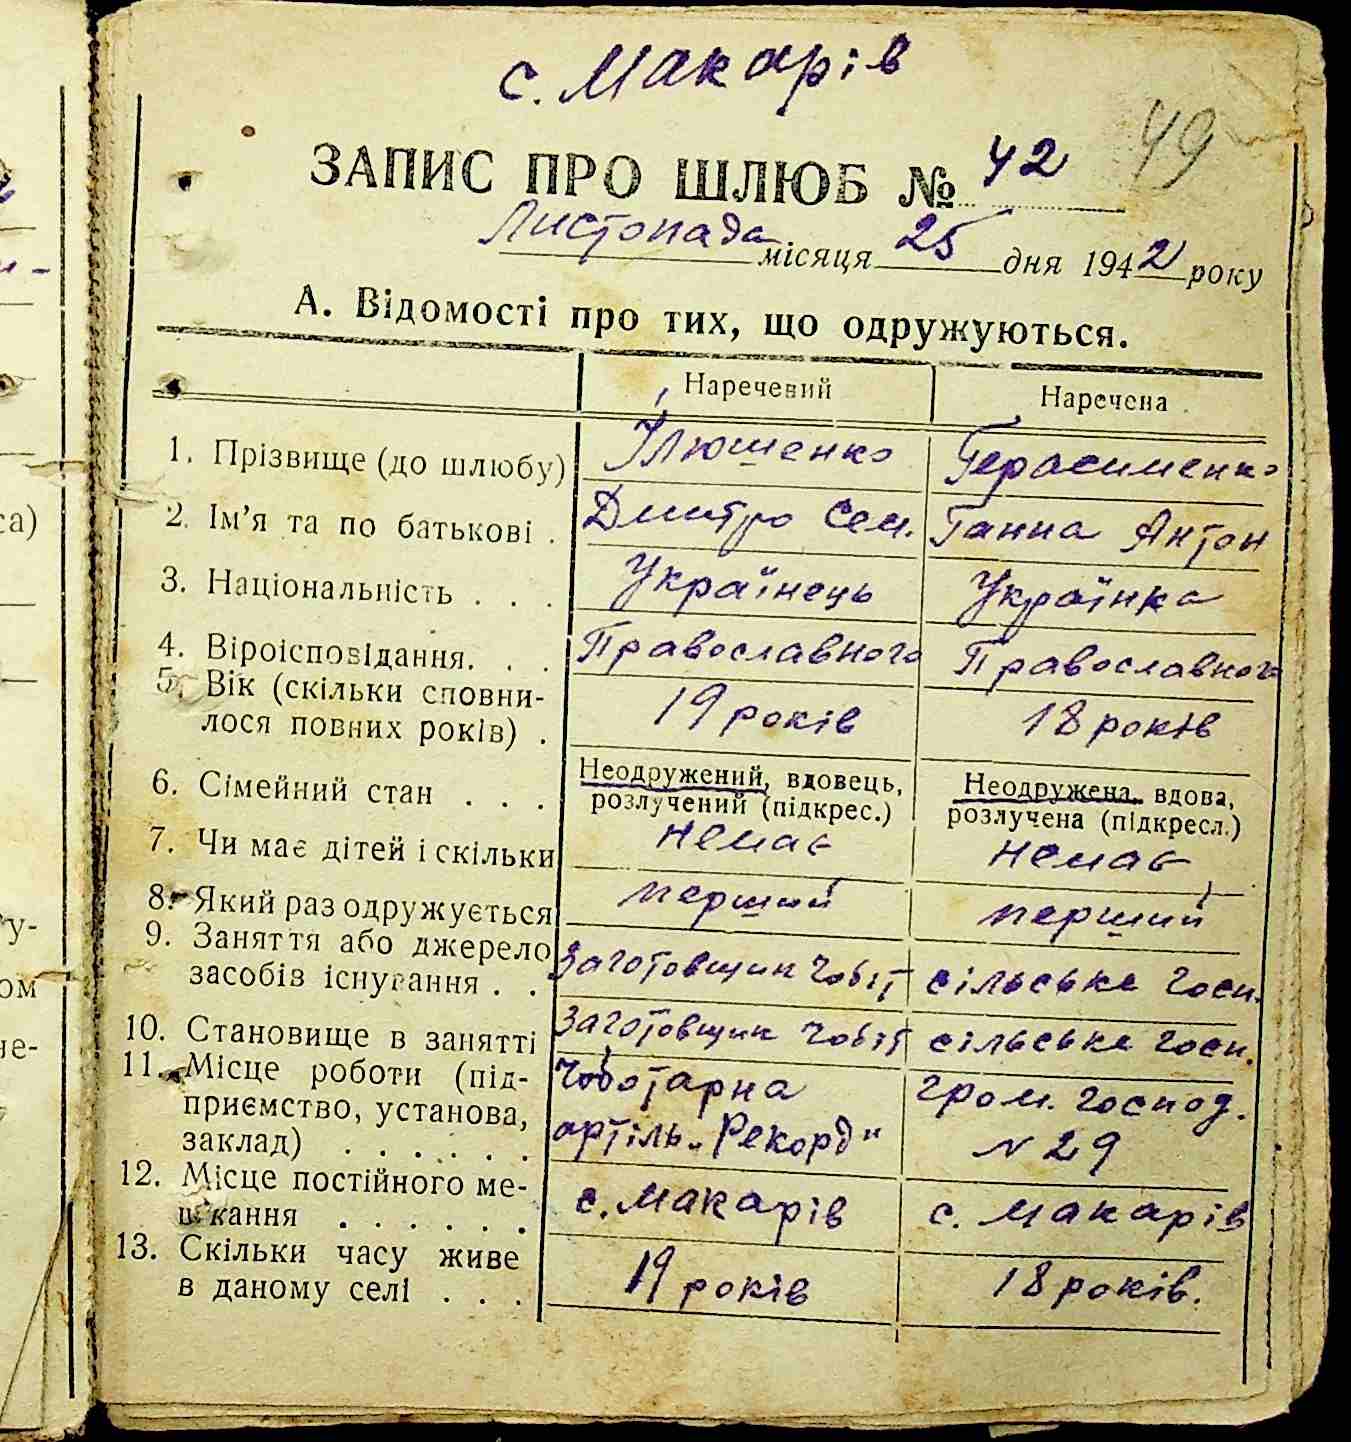 с. Макарів
49
ЗАПИС ПРО ШЛЮБ № 42
Листопада місяця 25 дня 1942 року
А. Відомості про тих, що одружуються.
Наречений Наречена
1. Прізвище (до шлюбу) Ілюшенко Герасименко
2. Ім'я та по батькові . Дмитро Сем. Ганна Антон
3. Національність . . . Українець Українка
4. Віроісповідання. . . Православного Православного
5. Вік (скільки сповни-
лося повних років) . 19 років 18 років
6. Сімейний стан . . . Неодружений, вдовець, розлучений (підкрес.) Неодружена, вдова, розлучена (підкресл.)
7. Чи має дітей і скільки немає немає
8. Який раз одружується перший перший
9. Заняття або джерело
засобів існування . . Заготовщик чобіт сільське госп.
10. Становище в занятті Заготовщик чобіт сільське госп.
11. Місце роботи (під-
приємство, установа,
заклад) . . . . . . Чоботарна артіль „Рекорд" гром. господ. № 29
12. Місце постійного ме-
шкання . . . . . . с. Макарів с. Макарів
13. Скільки часу живе
в даному селі . . . 19 років 18 років.
са)
у-
ом
че-